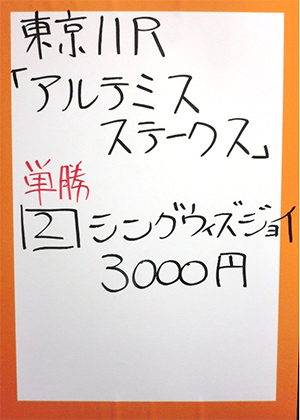 東京11R
「アルテミス
ステークス」
単勝
2 シングウィズジョイ
3000円